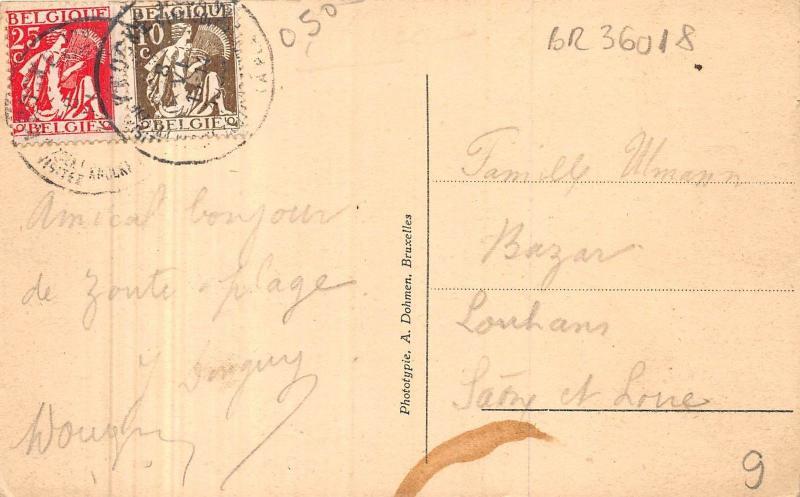 BELGIQUE
25
C
BELGIE
BELGIQUE
10
C
BELGIE
0,50
BR 36018
Amical bonjour
de Zoute-plage
Famille Ulmann
Bazar
Louhans
Saône et Loire
Phototypie, A. Dohmen, Bruxelles
9